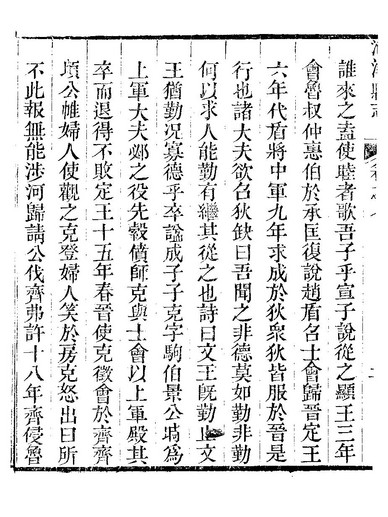 縣志
誰來之盍使睦者歌吾子乎宣子說從之顯王三年
會魯叔仲惠伯於承匡復說趙盾名士會歸晉定王
六年代盾將中軍九年求成於狄衆狄皆服於晉是
行也諸大夫欲召狄缺曰吾聞之非德莫如勤非勤
何以求人能勤有繼其從之也詩曰文王旣勤止文
王猶勤況寡德乎卒諡成子子克字駒伯景公時爲
上軍大夫邲之役先縠僨師克與士會以上軍殿其
卒而退得不敗定王十五年春晉使克徵會於齊齊
頃公帷婦人使觀之克登婦人笑於房克怒出曰所
不此報無能涉河歸請公伐齊弗許十八年齊侵魯